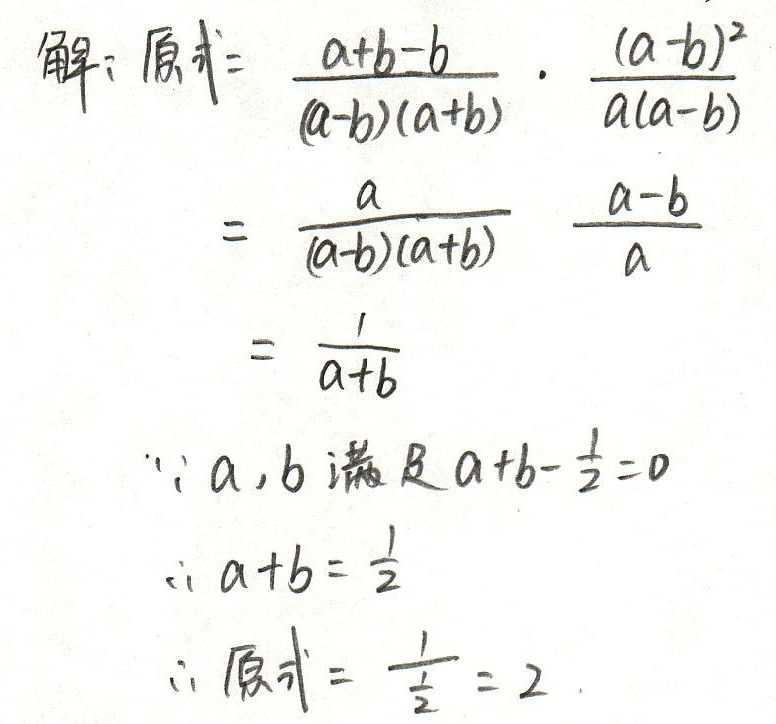 解：原式= \frac{a+b-b}{(a-b)(a+b)} · \frac{(a-b)^2}{a(a-b)}
= \frac{a}{(a-b)(a+b)} \frac{a-b}{a}
= \frac{1}{a+b}
∵ a,b 满足 a+b-\frac{1}{2}=0
∴ a+b=\frac{1}{2}
∴ 原式= \frac{1}{\frac{1}{2}} = 2.